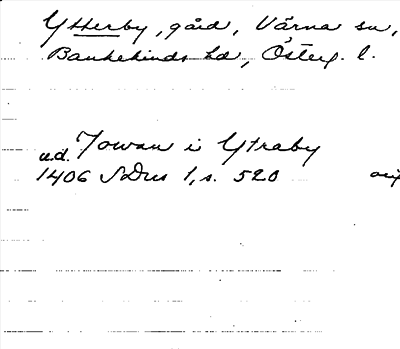 Ytterby, gård, Värna sn,
Bankekinds hd, Österg. l.
Jowan i Ytraby
u.d.
1406 SDns 1, s. 520 orig